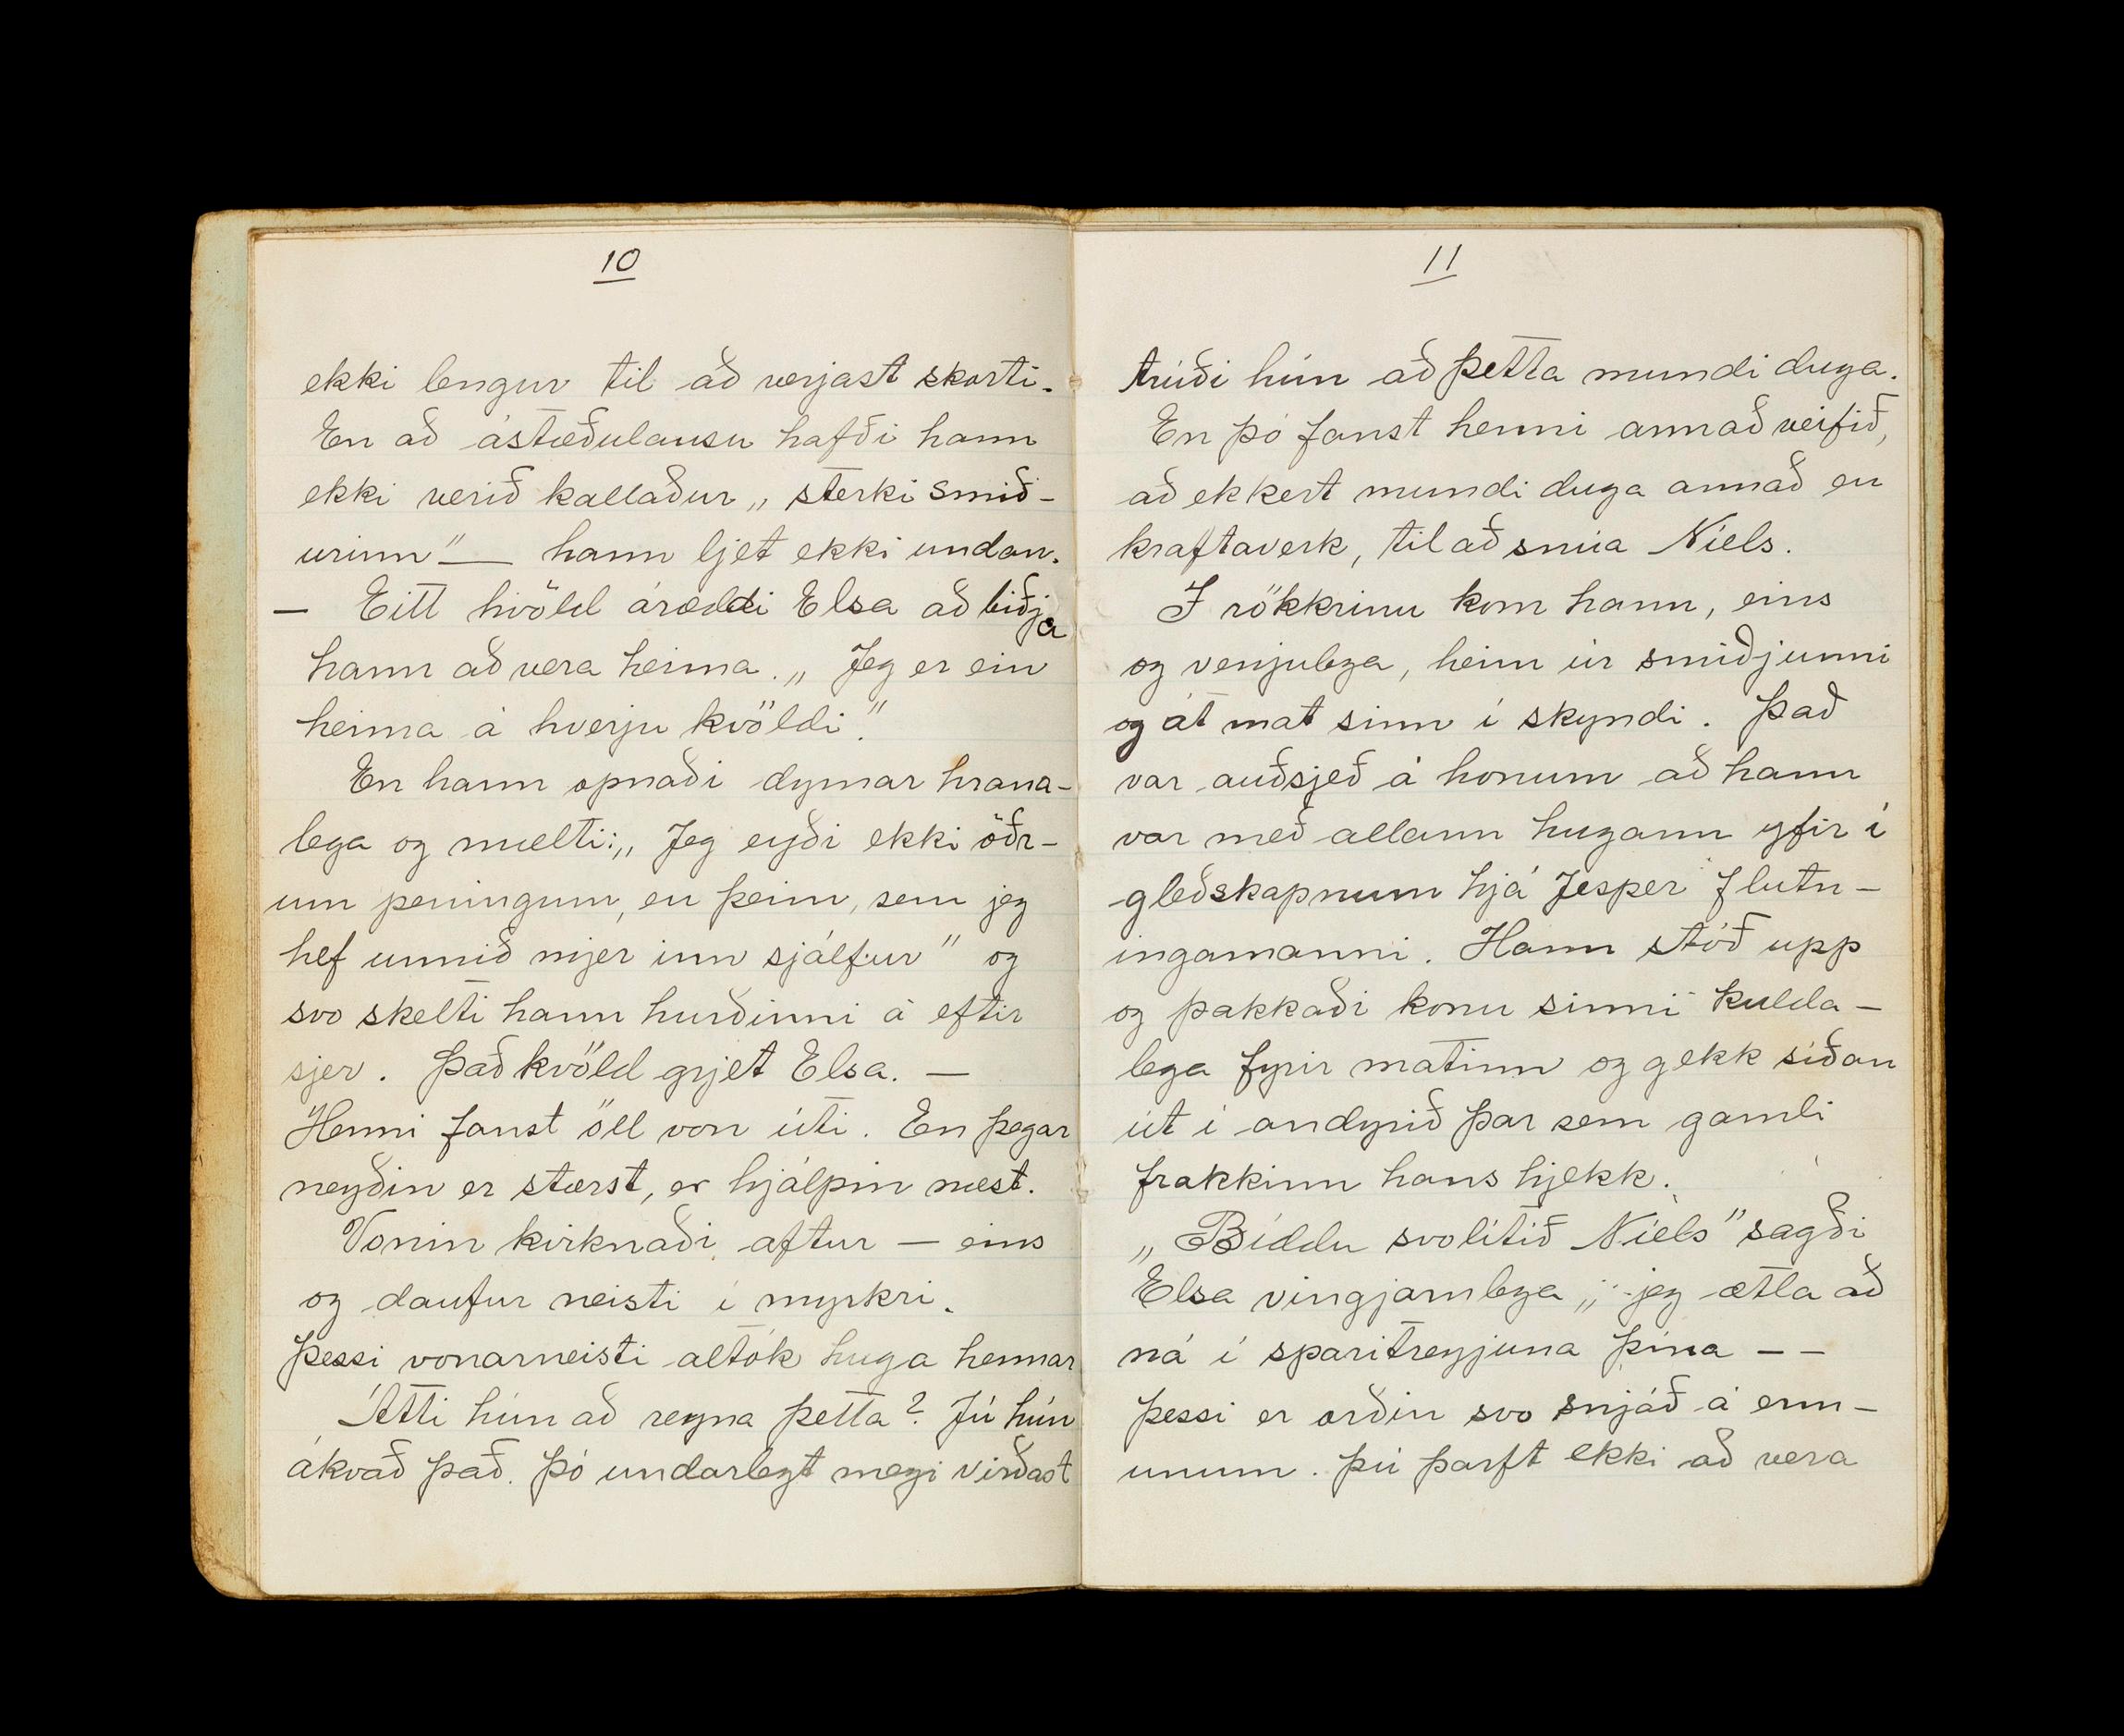 10
ekki lengur til að verjast skorti.
En að ástæðulausu hafði hann
ekki verið kallaður „sterki smið-
urinn" — hann ljet ekki undan.
— Eitt kvöld áræddi Elsa að biðja
hann að vera heima. „Jeg er ein
heima á hverju kvöldi".
En hann opnaði dyrnar hrana-
lega og mælti: „Jeg eyði ekki öðr-
um peningum, en þeim, sem jeg
hef unnið mjer inn sjálfur" og
svo skelti hann hurðinni á eftir
sjer. Það kvöld grjet Elsa. —
Henni fanst öll von úti. En þegar
neyðin er stærst, er hjálpin næst.
Vonin kviknaði aftur — eins
og daufur neisti í myrkri.
Þessi vonarneisti altók huga hennar
Átti hún að reyna þetta? Jú hún
ákvað það. Þó undarlegt megi virðast
11
trúði hún að þetta mundi duga.
En þó fanst henni annað veifið,
að ekkert mundi duga annað en
kraftaverk, til að snúa Níels.
Í rökkrinu kom hann, eins
og venjulega, heim úr smiðjunni
og át mat sinn í skyndi. Það
var auðsjeð á honum að hann
var með allann hugann yfir í
gleðskapnum hjá Jesper flutn-
ingamanni. Hann stóð upp
og þakkaði konu sinni kulda-
lega fyrir matinn og gekk síðan
út í andyrið þar sem gamli
frakkinn hans hjekk.
„Bíddu svolítið Níels" sagði
Elsa vingjarnlega „jeg ætla að
ná í sparitreyjuna þína – –
þessi er orðin svo snjáð á erm-
unum. Þú þarft ekki að vera